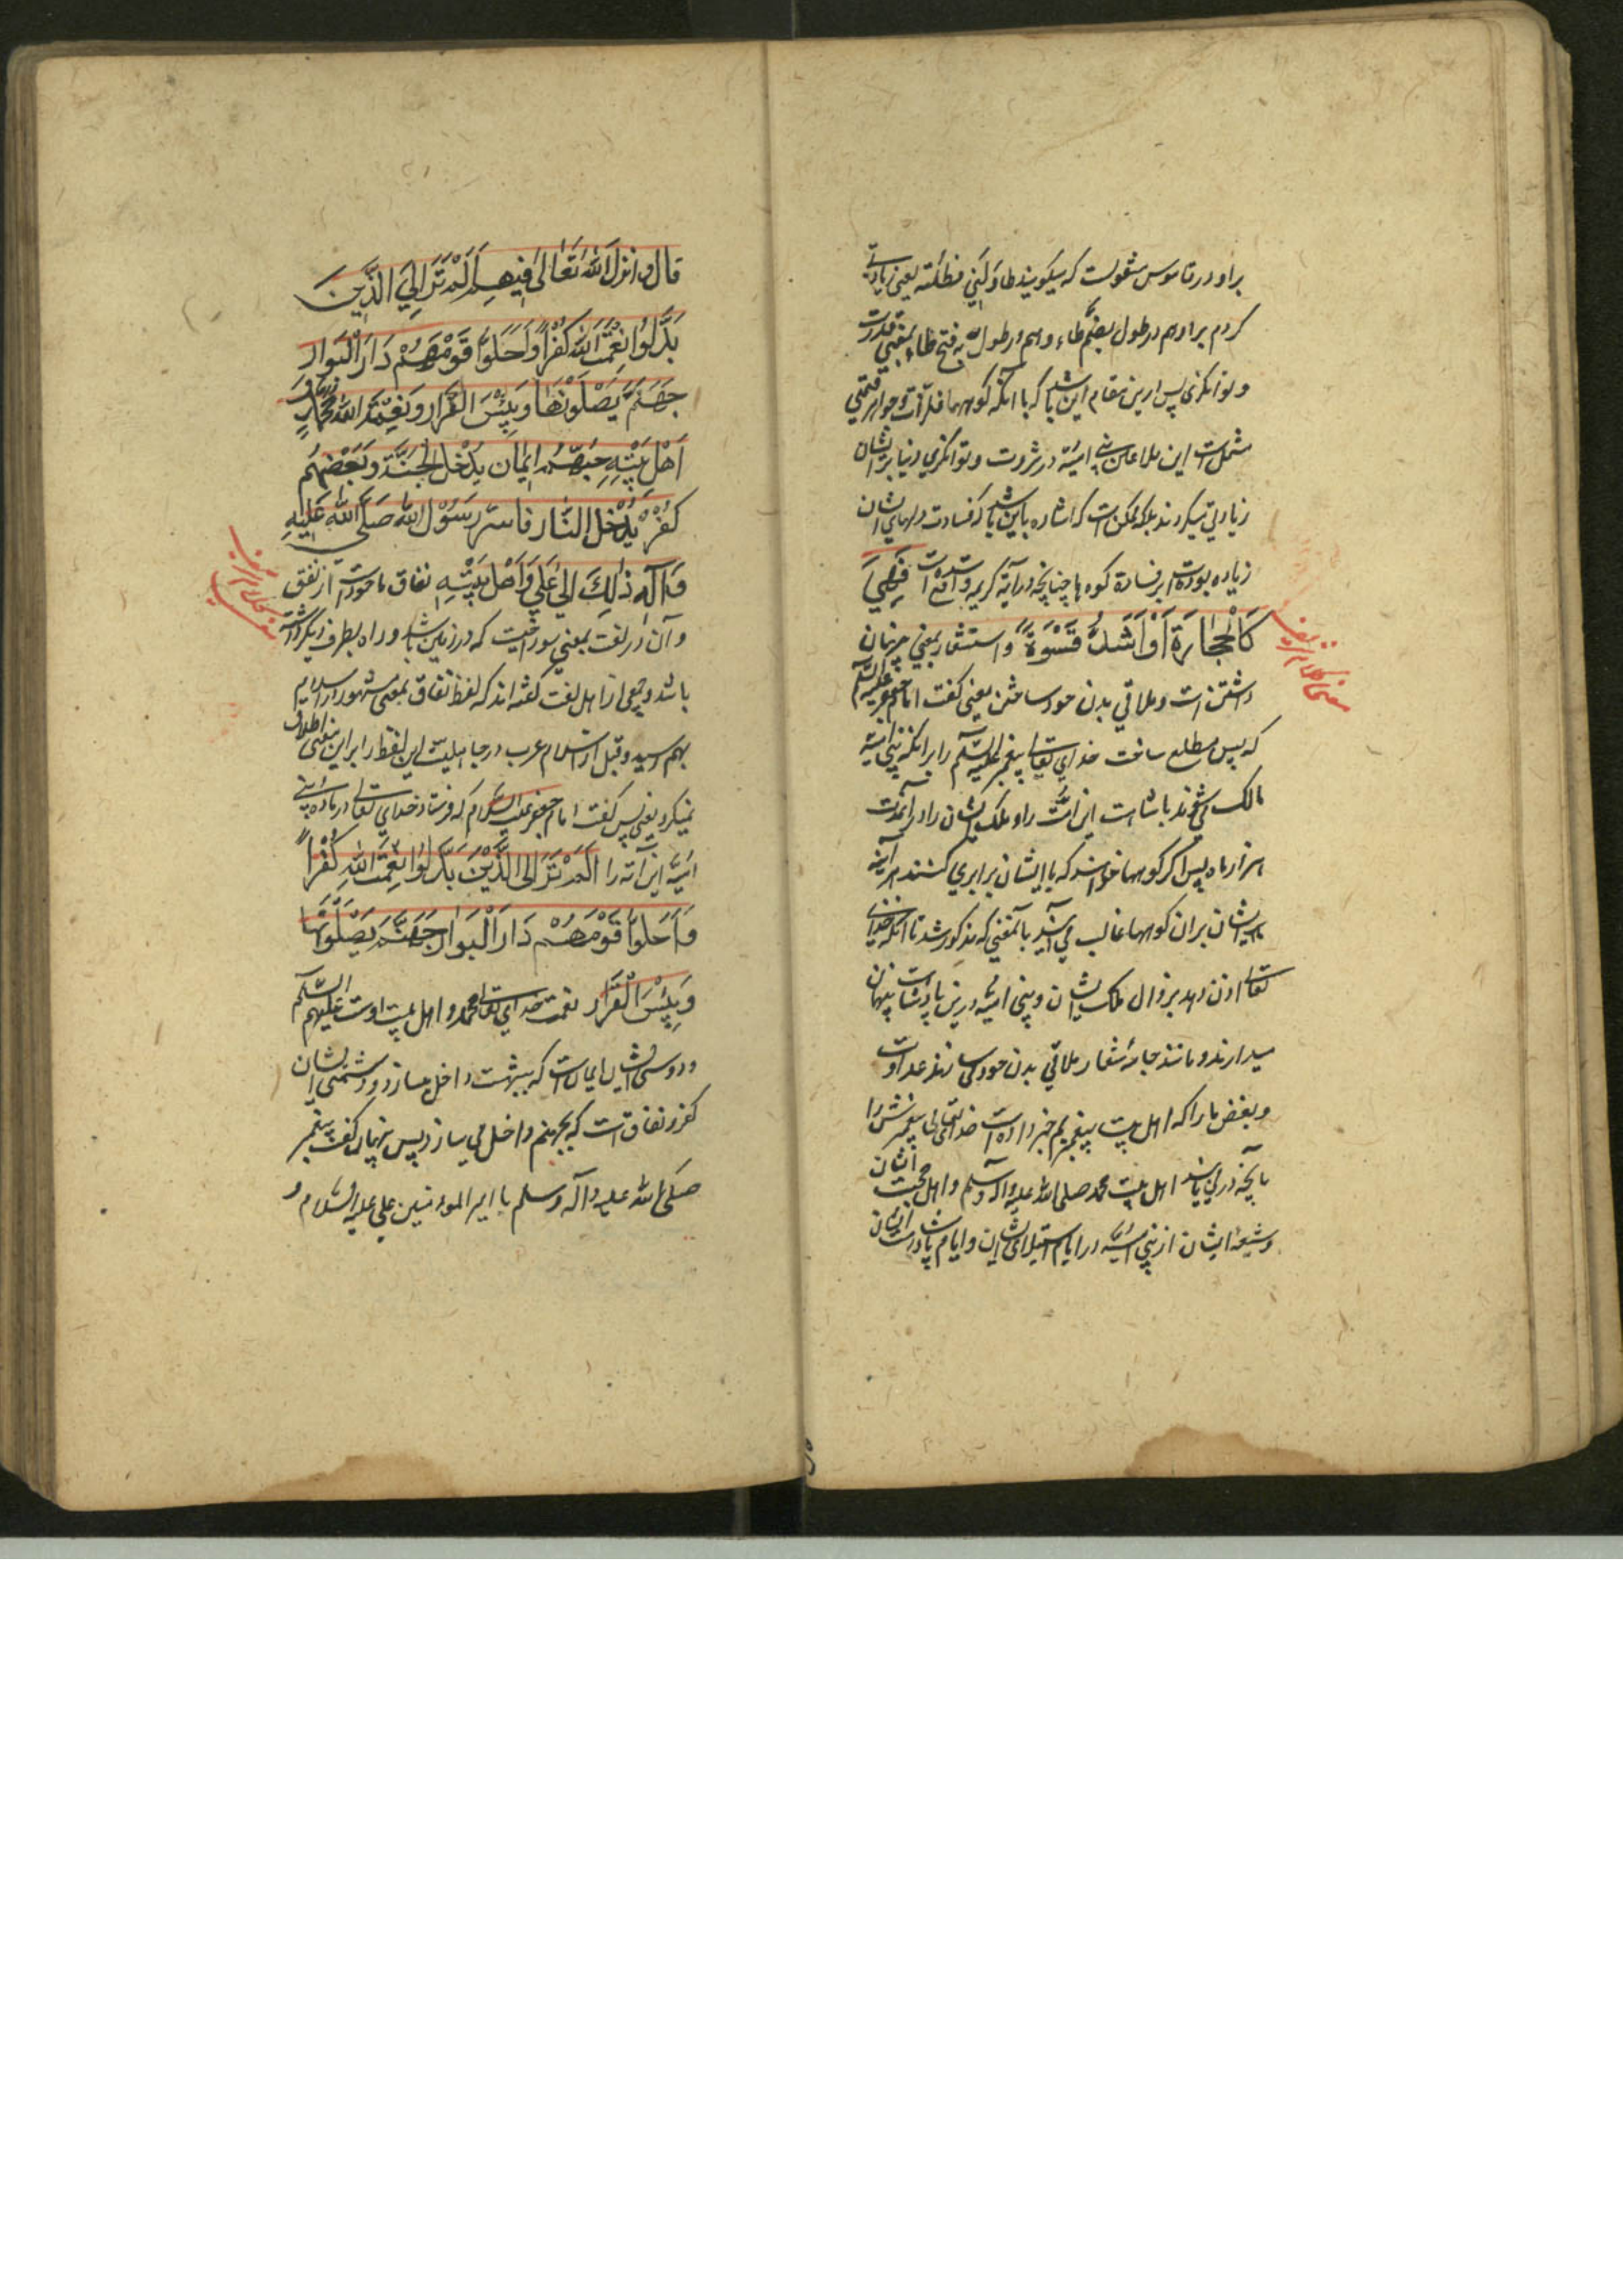 براو در قاموس منقولست که میگویند طاولنی فطلته یعنی زیادتی
کردم براو هم در طول بضم طاء و هم در طول به فتح طاء بمعنی قدرت
و توانکری پس ازین مقام این باشد که با آنکه کوهها فلزات و جواهر قیمتی
مشتمل است این ملاعین بنی امیه در ثروت و توانکری دنیا برایشان
زیادتی میکردند بلکه ممکن است که اشاره باین باشد که قساوت دلهای ایشان
زیاده بوده است بر قساوة کوه ها چنانچه در آیه کریمه واقع شده است فَهِيَ
كَالْحِجَارَةِ أَوْ أَشَدُّ قَسْوَةً و استشعار بمعنی پنهان
داشتن است و ملاقی بدن خود ساختن یعنی گفت امام جعفر علیه السلام
که پس مطلع ساخت خدای تعالی پیغمبر علیه السلام را برانکه بنی امیه
مالک می شوند پادشاهی این امت را و ملک ایشان را در مدت
هزار ماه پس اگر کوهها خواهند که با ایشان برابری کنند هر آینه
ایشان بران کوهها غالب می آیند بآنمعنی که مذکور شد تا آنکه خدای
تعالی اذن دهد بزوال ملک ایشان و بنی امیه درین پادشاهی پنهان
میدارند و مانند جامهٔ شعار ملاقی بدن خود می سازند عداوت
و بغض ما را که اهل بیت پیغمبریم خبر داده است خدای تعالی پیغمبرش را
بآنچه در می یابند اهل بیت محمد صلی الله علیه و آله و سلم و اهل محبت ایشان
و شیعهٔ ایشان از بنی امیه در ایام استیلای ایشان و ایام پادشاهی ایشان
قال و انزل الله تَعَالىٰ فِيهِم أَلَمْ تَرَ إِلَى الَّذِينَ
بَدَّلُوا نِعْمَتَ اللهِ كُفْراً وَأَحَلُّوا قَوْمَهُمْ دَارَ الْبَوَارِ
جَهَنَّمَ يَصْلَوْنَهَا وَبِئْسَ الْقَرَارُ وَنِعْمَةُ اللهِ مُحَمَّدٌ وَ
أَهْلُ بَيْتِهِ حُبُّهُمْ إِيمَان يُدْخِلُ الْجَنَّةَ وَبُغْضُهُمْ
كُفْرٌ يُدْخِلُ النَّارَ فَأَسَرَّ رَسُولُ اللهِ صَلَّى اللهُ عَلَيْهِ
وَآلِهِ ذٰلِكَ إِلىٰ عَلِيٍّ وَأَهْلِ بَيْتِهِ نفاق ماخوذ است از نفق
و آن در لغت بمعنی سوراخیست که در زمین باشد و راه بطرف دیگر داشته
باشد و جمعی از اهل لغت گفته اند که لفظ نفاق بمعنی مشهور در اسلام
بهم رسید و قبل از اسلام عرب در جاهلیت این لفظ را برین معنی اطلاق
نمیکرد یعنی پس گفت امام جعفر علیه السلام که فرستاد خدای تعالی در باره بنی
امیه این آیه را أَلَمْ تَرَ إِلَى الَّذِينَ بَدَّلُوا نِعْمَتَ اللهِ كُفْراً
وَأَحَلُّوا قَوْمَهُمْ دَارَ الْبَوَارِ جَهَنَّمَ يَصْلَوْنَهَا
وَبِئْسَ الْقَرَارُ نعمت خدای تعالی محمد و اهل بیت اوست علیهم السلام
و دوستی ایشان ایمان است که ببهشت داخل میسازد و دشمنی ایشان
کفر و نفاق است که بجهنم داخل می سازد پس پنهان گفت پیغمبر
صلی الله علیه و آله و سلم با امیر المؤمنین علی علیه السلام و